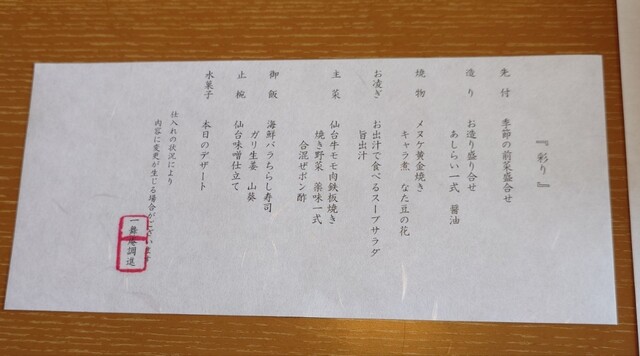 『彩り』
先付 季節の前菜盛合せ
造り お造り盛り合せ
あしらい一式 醤油
焼物 メヌケ黄金焼き
キャラ煮 なた豆の花
お凌ぎ お出汁で食べるスープサラダ
旨出汁
主菜 仙台牛モモ肉鉄板焼き
焼き野菜 薬味一式
合混ぜポン酢
御飯 海鮮バラちらし寿司
ガリ生姜 山葵
止椀 仙台味噌仕立て
水菓子 本日のデザート
仕入れの状況により
内容に変更が生じる場合がございます
一舞庵調進